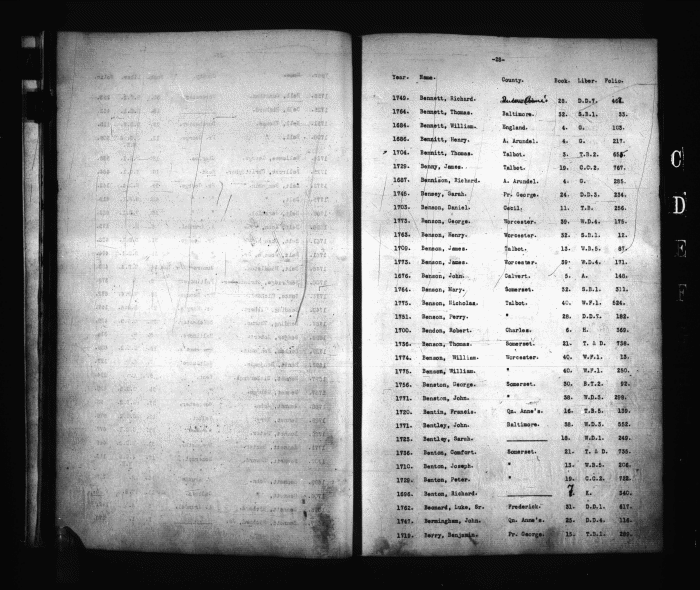 -28-
Year. Name. County. Book. Liber. Folio.
1749. Bennett, Richard. Queen Anne's 28. D.D.7. 462.
1764. Bennett, Thomas. Baltimore. 32. S.B.1. 33.
1684. Bennett, William. England. 4. G. 103.
1686. Bennitt, Henry. A. Arundel. 4. G. 217.
1704. Bennitt, Thomas. Talbot. 3. T.B.2. 655.
1729. Benny, James. Talbot. 19. C.C.2. 767.
1687. Bennison, Richard. A. Arundel. 4. G. 285.
1745. Bensey, Sarah. Pr. George. 24. D.D.3. 234.
1703. Benson, Daniel. Cecil. 11. T.B. 256.
1773. Benson, George. Worcester. 39. W.D.4. 175.
1763. Benson, Henry. Worcester. 32. S.D.1. 12.
1709. Benson, James. Talbot. 13. W.B.5. 87.
1773. Benson, James. Worcester. 39. W.D.4. 171.
1676. Benson, John. Calvert. 5. A. 148.
1764. Benson, Mary. Somerset. 32. S.B.1. 311.
1775. Benson, Nicholas. Talbot. 40. W.F.1. 524.
1751. Benson, Perry. " 28. D.D.7. 182.
1700. Bendon, Robert. Charles. 6. H. 369.
1736. Benson, Thomas. Somerset. 21. T. & D. 738.
1774. Benson, William. Worcester. 40. W.F.1. 13.
1775. Benson, William. " 40. W.F.1. 250.
1756. Benston, George. Somerset. 30. B.T.2. 92.
1771. Benston, John. " 38. W.D.3. 299.
1720. Bentin, Francis. Qn. Anne's. 16. T.B.5. 139.
1771. Bentley, John. Baltimore. 38. W.D.3. 552.
1723. Bentley, Sarah. 18. W.D.1. 249.
1736. Benton, Comfort. Somerset. 21. T. & D. 735.
1710. Benton, Joseph. " 13. W.B.5. 206.
1729. Benton, Peter. " 19. C.C.2. 722.
1696. Benton, Richard. 7. K. 340.
1762. Beonard, Luke, Sr. Frederick. 31. D.D.1. 417.
1747. Bermingham, John. Qn. Anne's. 25. D.D.4. 116.
1719. Berry, Benjamin. Pr. George. 15. T.D.1. 286.
C
D
E
F